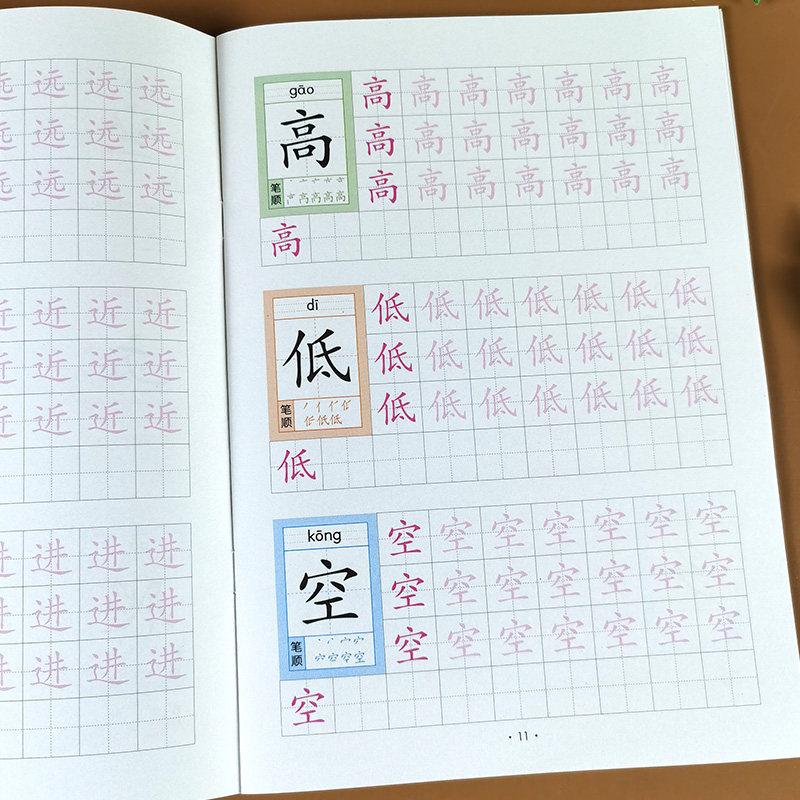 远 远 远
远 远 远
远 远 远
近 近 近
近 近 近
近 近 近
进 进 进
进 进 进
进 进 进
gāo
高
笔顺
高 高 高 高 高 高 高
高 高 高 高 高 高 高
高 高 高 高 高 高 高
高
dī
低
笔顺
低 低 低 低 低 低 低
低 低 低 低 低 低 低
低 低 低 低 低 低 低
低
kōng
空
笔顺
空 空 空 空 空 空 空
空 空 空 空 空 空 空
空 空 空 空 空 空 空
空
· 11 ·